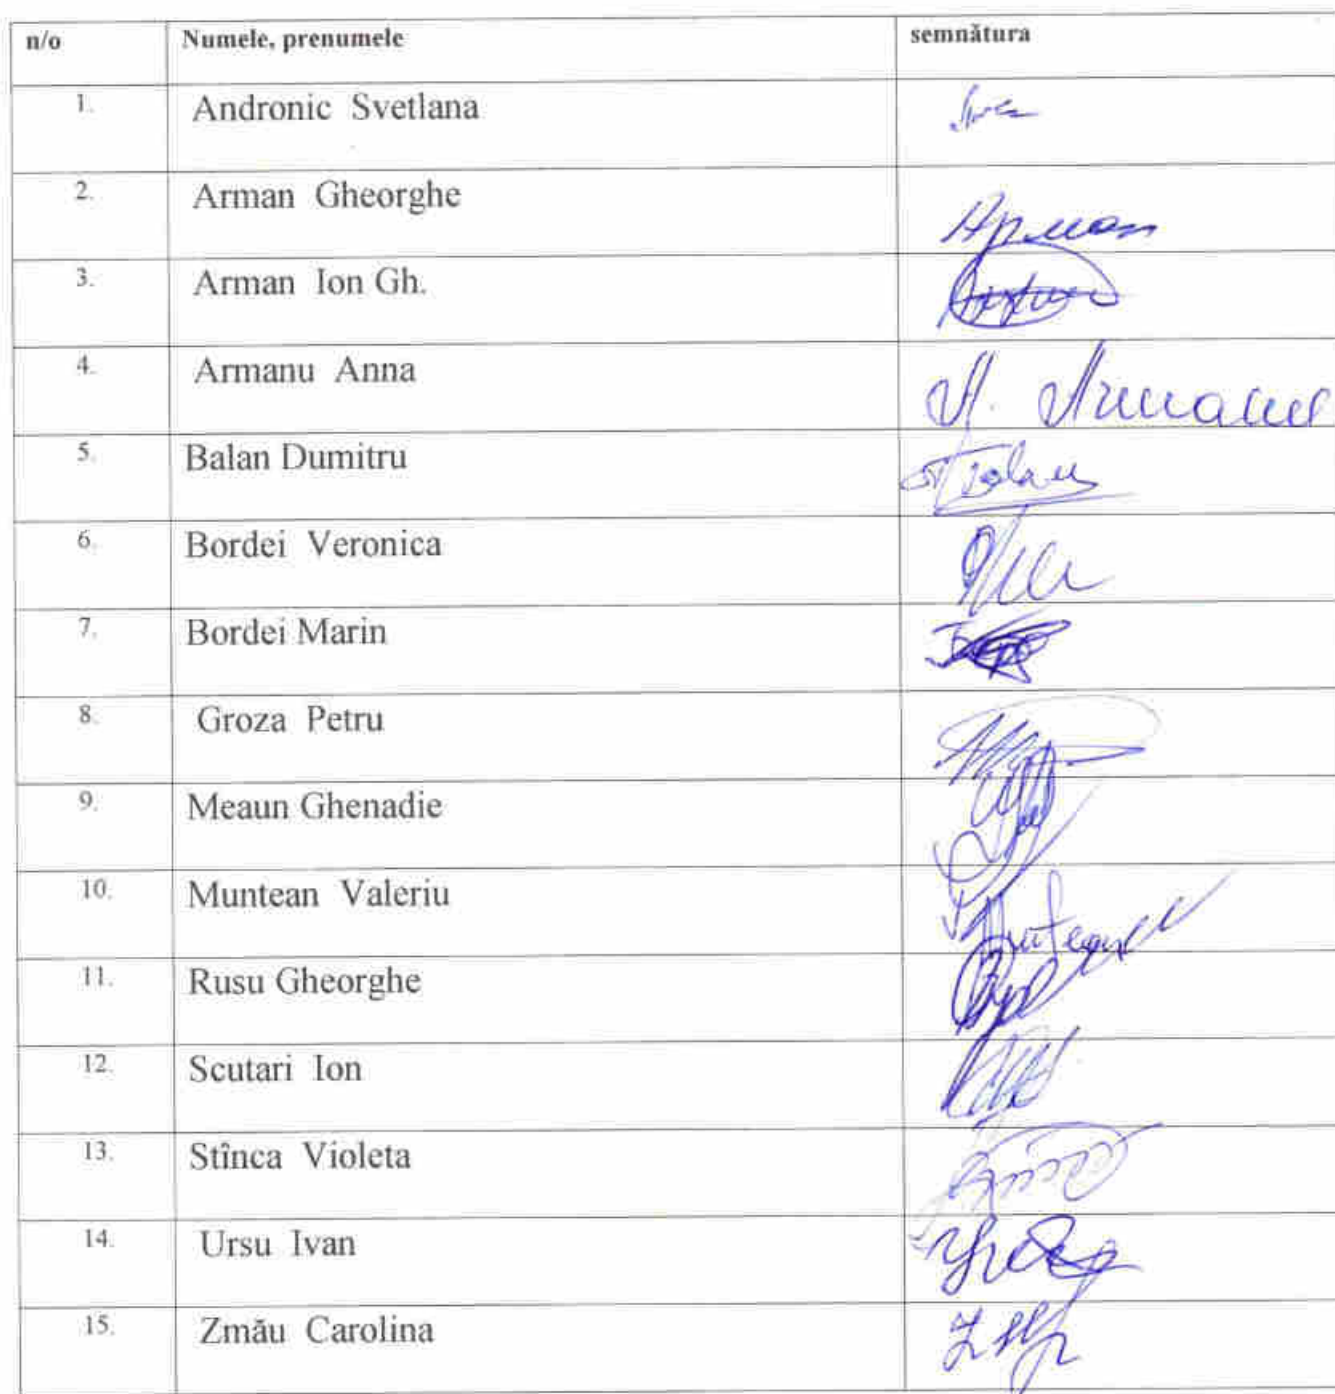 n/o Numele, prenumele semnătura
1. Andronic Svetlana
2. Arman Gheorghe Арман
3. Arman Ion Gh.
4. Armanu Anna A. Armanu
5. Balan Dumitru
6. Bordei Veronica
7. Bordei Marin
8. Groza Petru
9. Meaun Ghenadie
10. Muntean Valeriu
11. Rusu Gheorghe
12. Scutari Ion
13. Stînca Violeta
14. Ursu Ivan
15. Zmău Carolina